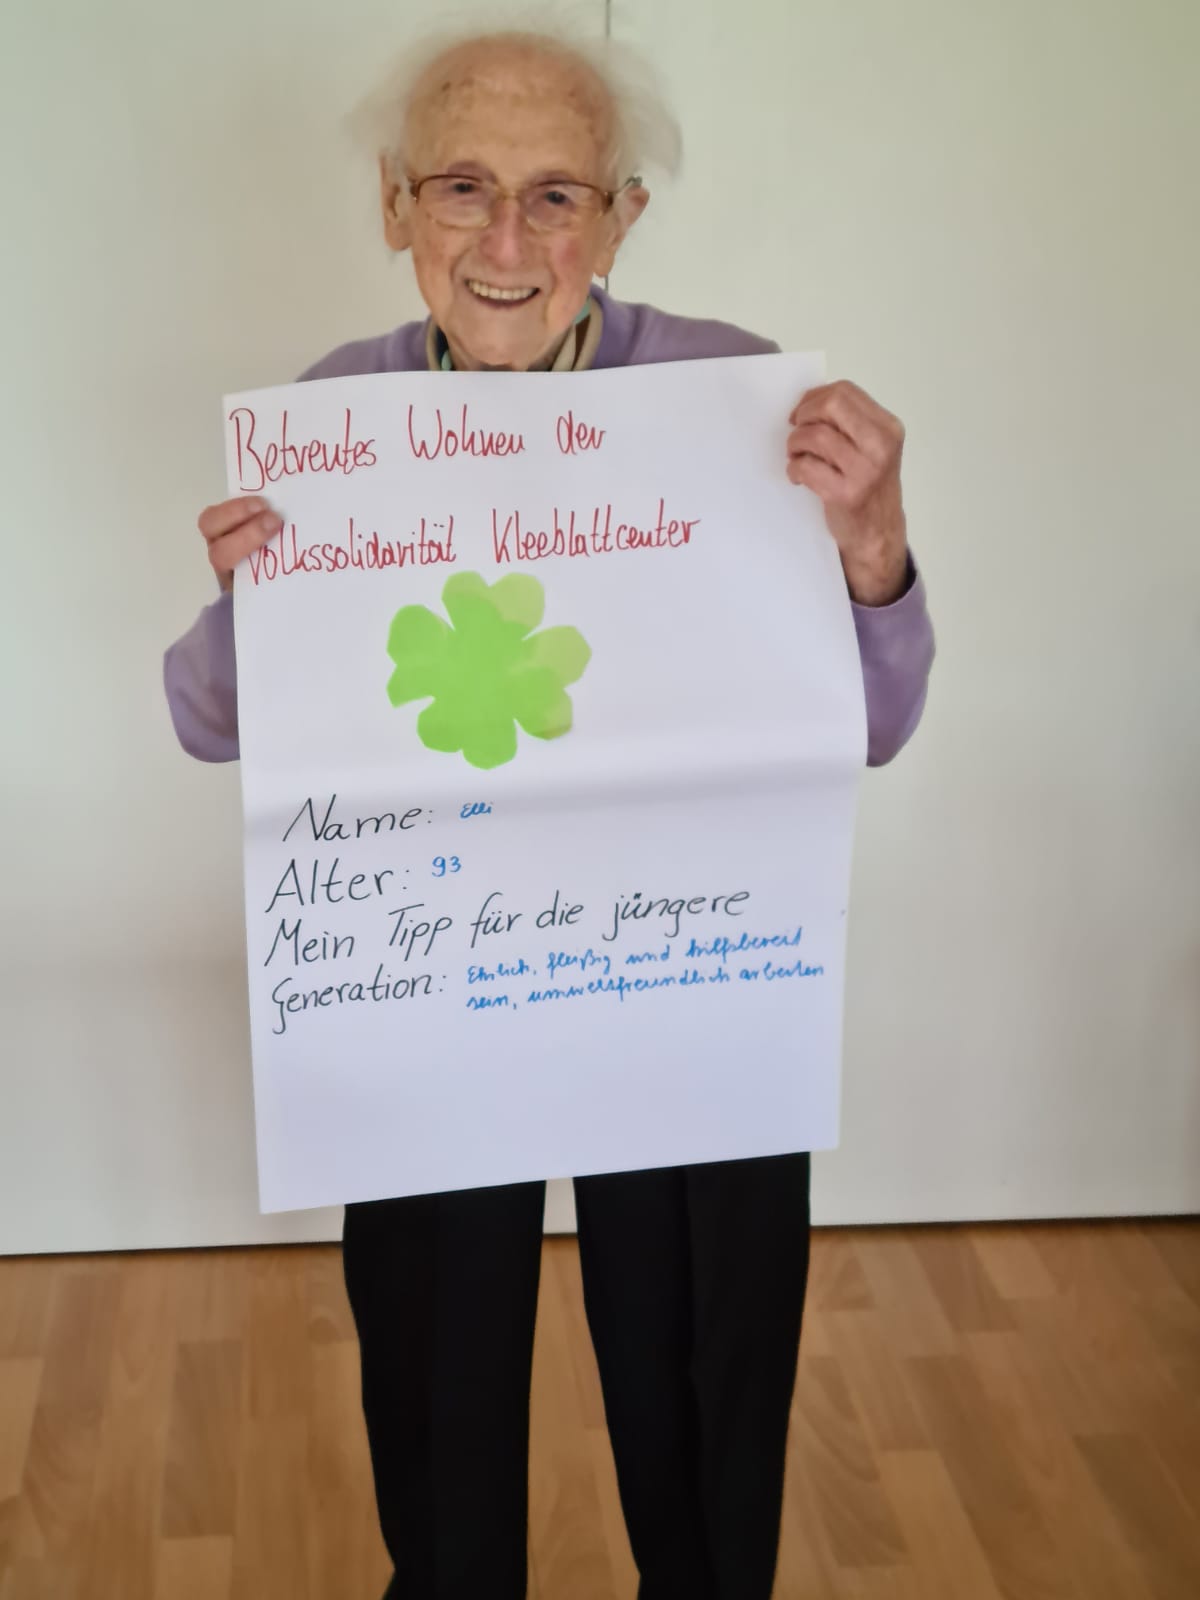 Betreutes Wohnen der
Volkssolidarität Kleeblattcenter
Name: Elli
Alter: 93
Mein Tipp für die jüngere
Generation: Ehrlich, fleißig und hilfsbereit
sein, umweltfreundlich arbeiten